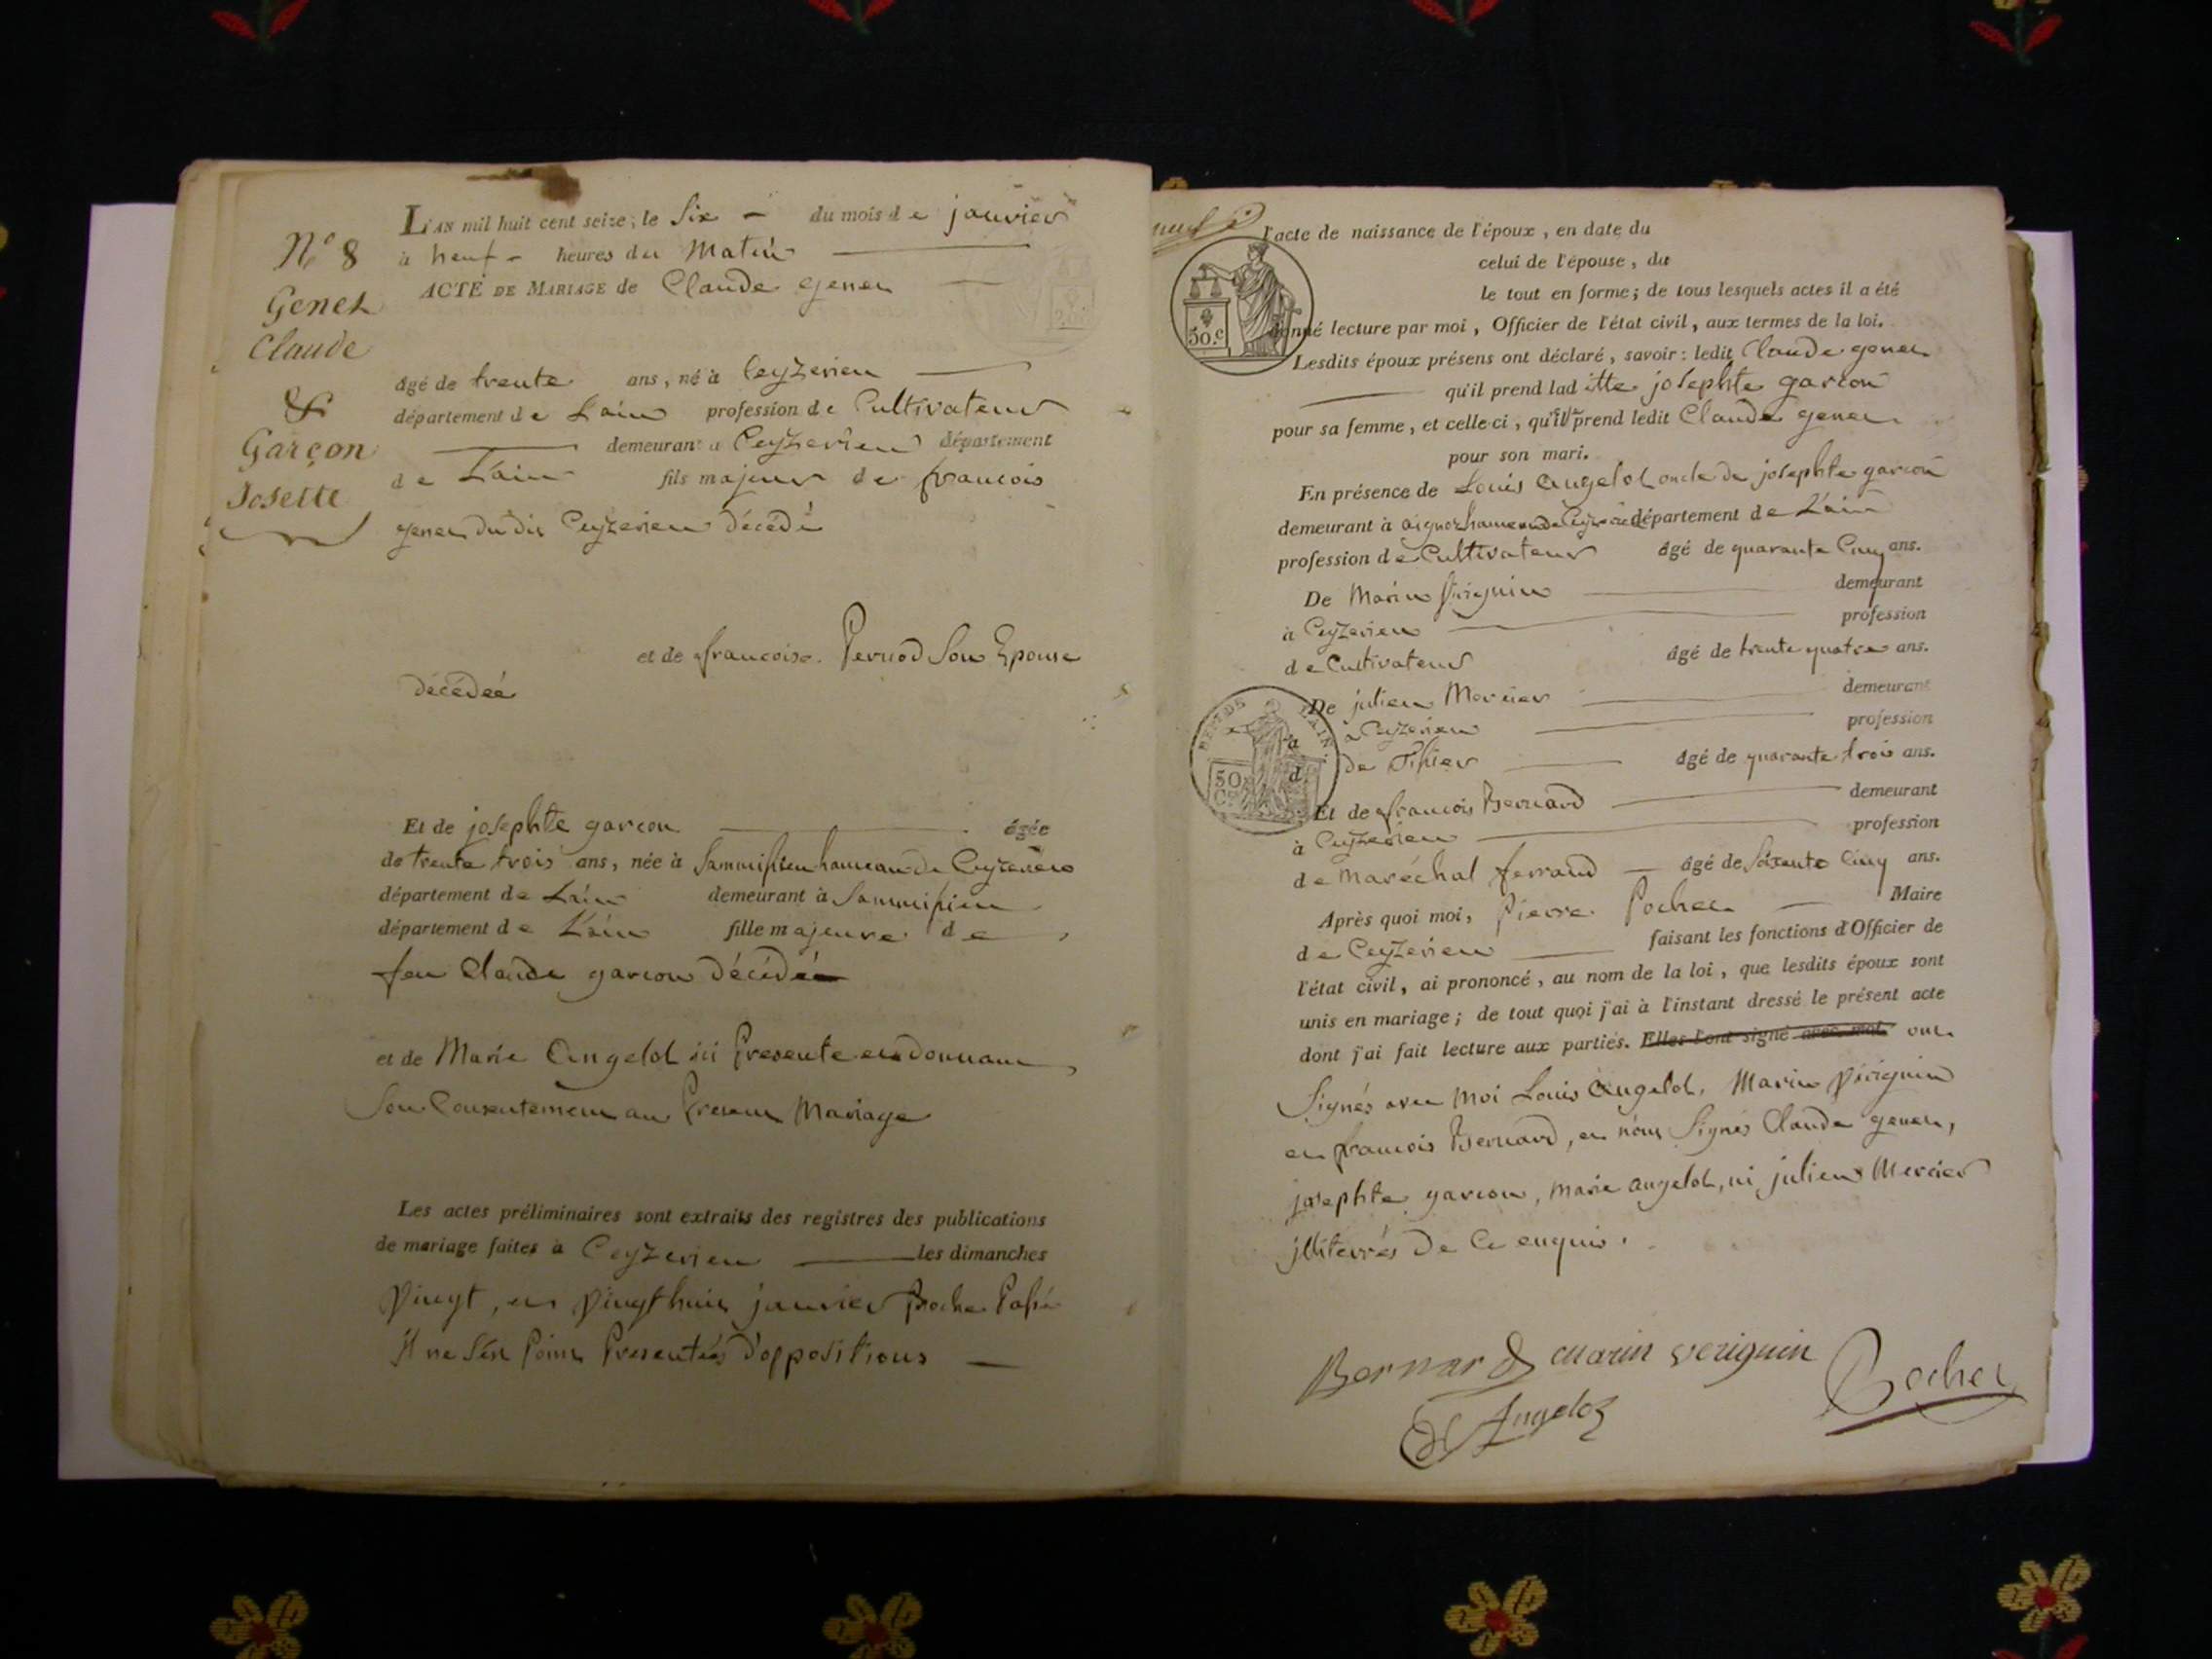 L'AN mil huit cent seize, le Six - du mois de janvier
à heuf - heures du Matin
ACTE DE MARIAGE de Claude genet
N.° 8
Genet
Claude
&
Garçon
Josette
âgé de trente ans, né à Ceyzerieu
département de Lain profession de Cultivateur
demeurant a Ceyzerieu département
de Lain fils majeur de francois
genet du dit Ceyzerieu décédé
et de francoise Pernod Son Epouse
décédeé
Et de josephte garcon âgée
de trente trois ans, née à hameau de Ceyzerieu
département de Lain demeurant à
département de L'ain fille majeure de
feu Claude garcon décédé
et de Marie Angelot ici Presente et donnant
Son Consentement au Present Mariage
Les actes préliminaires sont extraits des registres des publications
de mariage faites à Ceyzerieu les dimanches
Vingt, et Vingt huit janvier Proche Passé
Il ne S'est Point Presentées d'oppositions
l'acte de naissance de l'époux, en date du
celui de l'épouse, du
le tout en forme; de tous lesquels actes il a été
donné lecture par moi, Officier de l'état civil, aux termes de la loi.
50.c
Lesdits époux présens ont déclaré, savoir: ledit Claude genet
qu'il prend lad itte josephte garcon
pour sa femme, et celle-ci, qu'il prend ledit Claude genet
pour son mari.
En présence de Louis Angelot oncle de josephte garcon
demeurant à aignoz hameau de Ceyzerieu département de L'ain
profession de Cultivateur âgé de quarante Cinq ans.
De Marin Vériguin demeurant
à Ceyzerieu profession
de Cultivateur âgé de trente quatre ans.
De julien Mercier demeurant
a Ceyzerieu profession
de Tissier âgé de quarante trois ans.
50
C.
Et de francois Bernard demeurant
à Ceyzerieu profession
de Maréchal ferrand âgé de Soixante Cinq ans.
Après quoi moi, Pierre Pochet Maire
de Ceyzerieu faisant les fonctions d'Officier de
l'état civil, ai prononcé, au nom de la loi, que lesdits époux sont
unis en mariage; de tout quoi j'ai à l'instant dressé le présent acte
dont j'ai fait lecture aux parties. Elles l'ont signé avec moi. ont
Signés avec Moi Louis Angelot, Marin Vériguin
et francois Bernard, et non Signés Claude genet,
josephte garcon, Marie angelot, ni julien Mercier
jllitérrés de Ce enquis.
Bernard marin veriguin Pochet
Angeloz